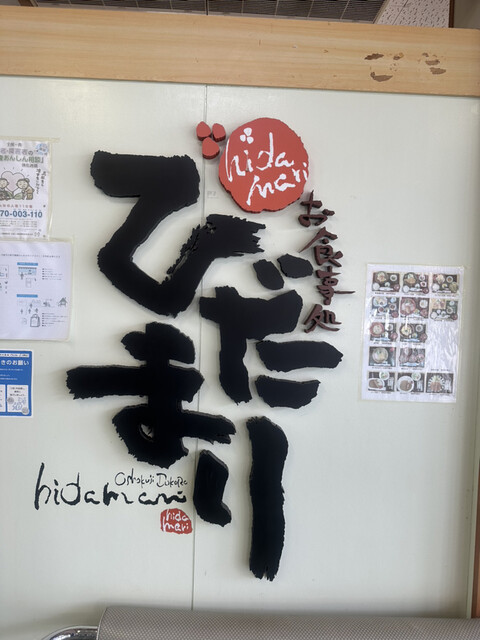 hida
mari
お食事処
ひだ
まり
Oshokuji Dokoro
hidamari
hida
mari
70-003-110
きのお願い